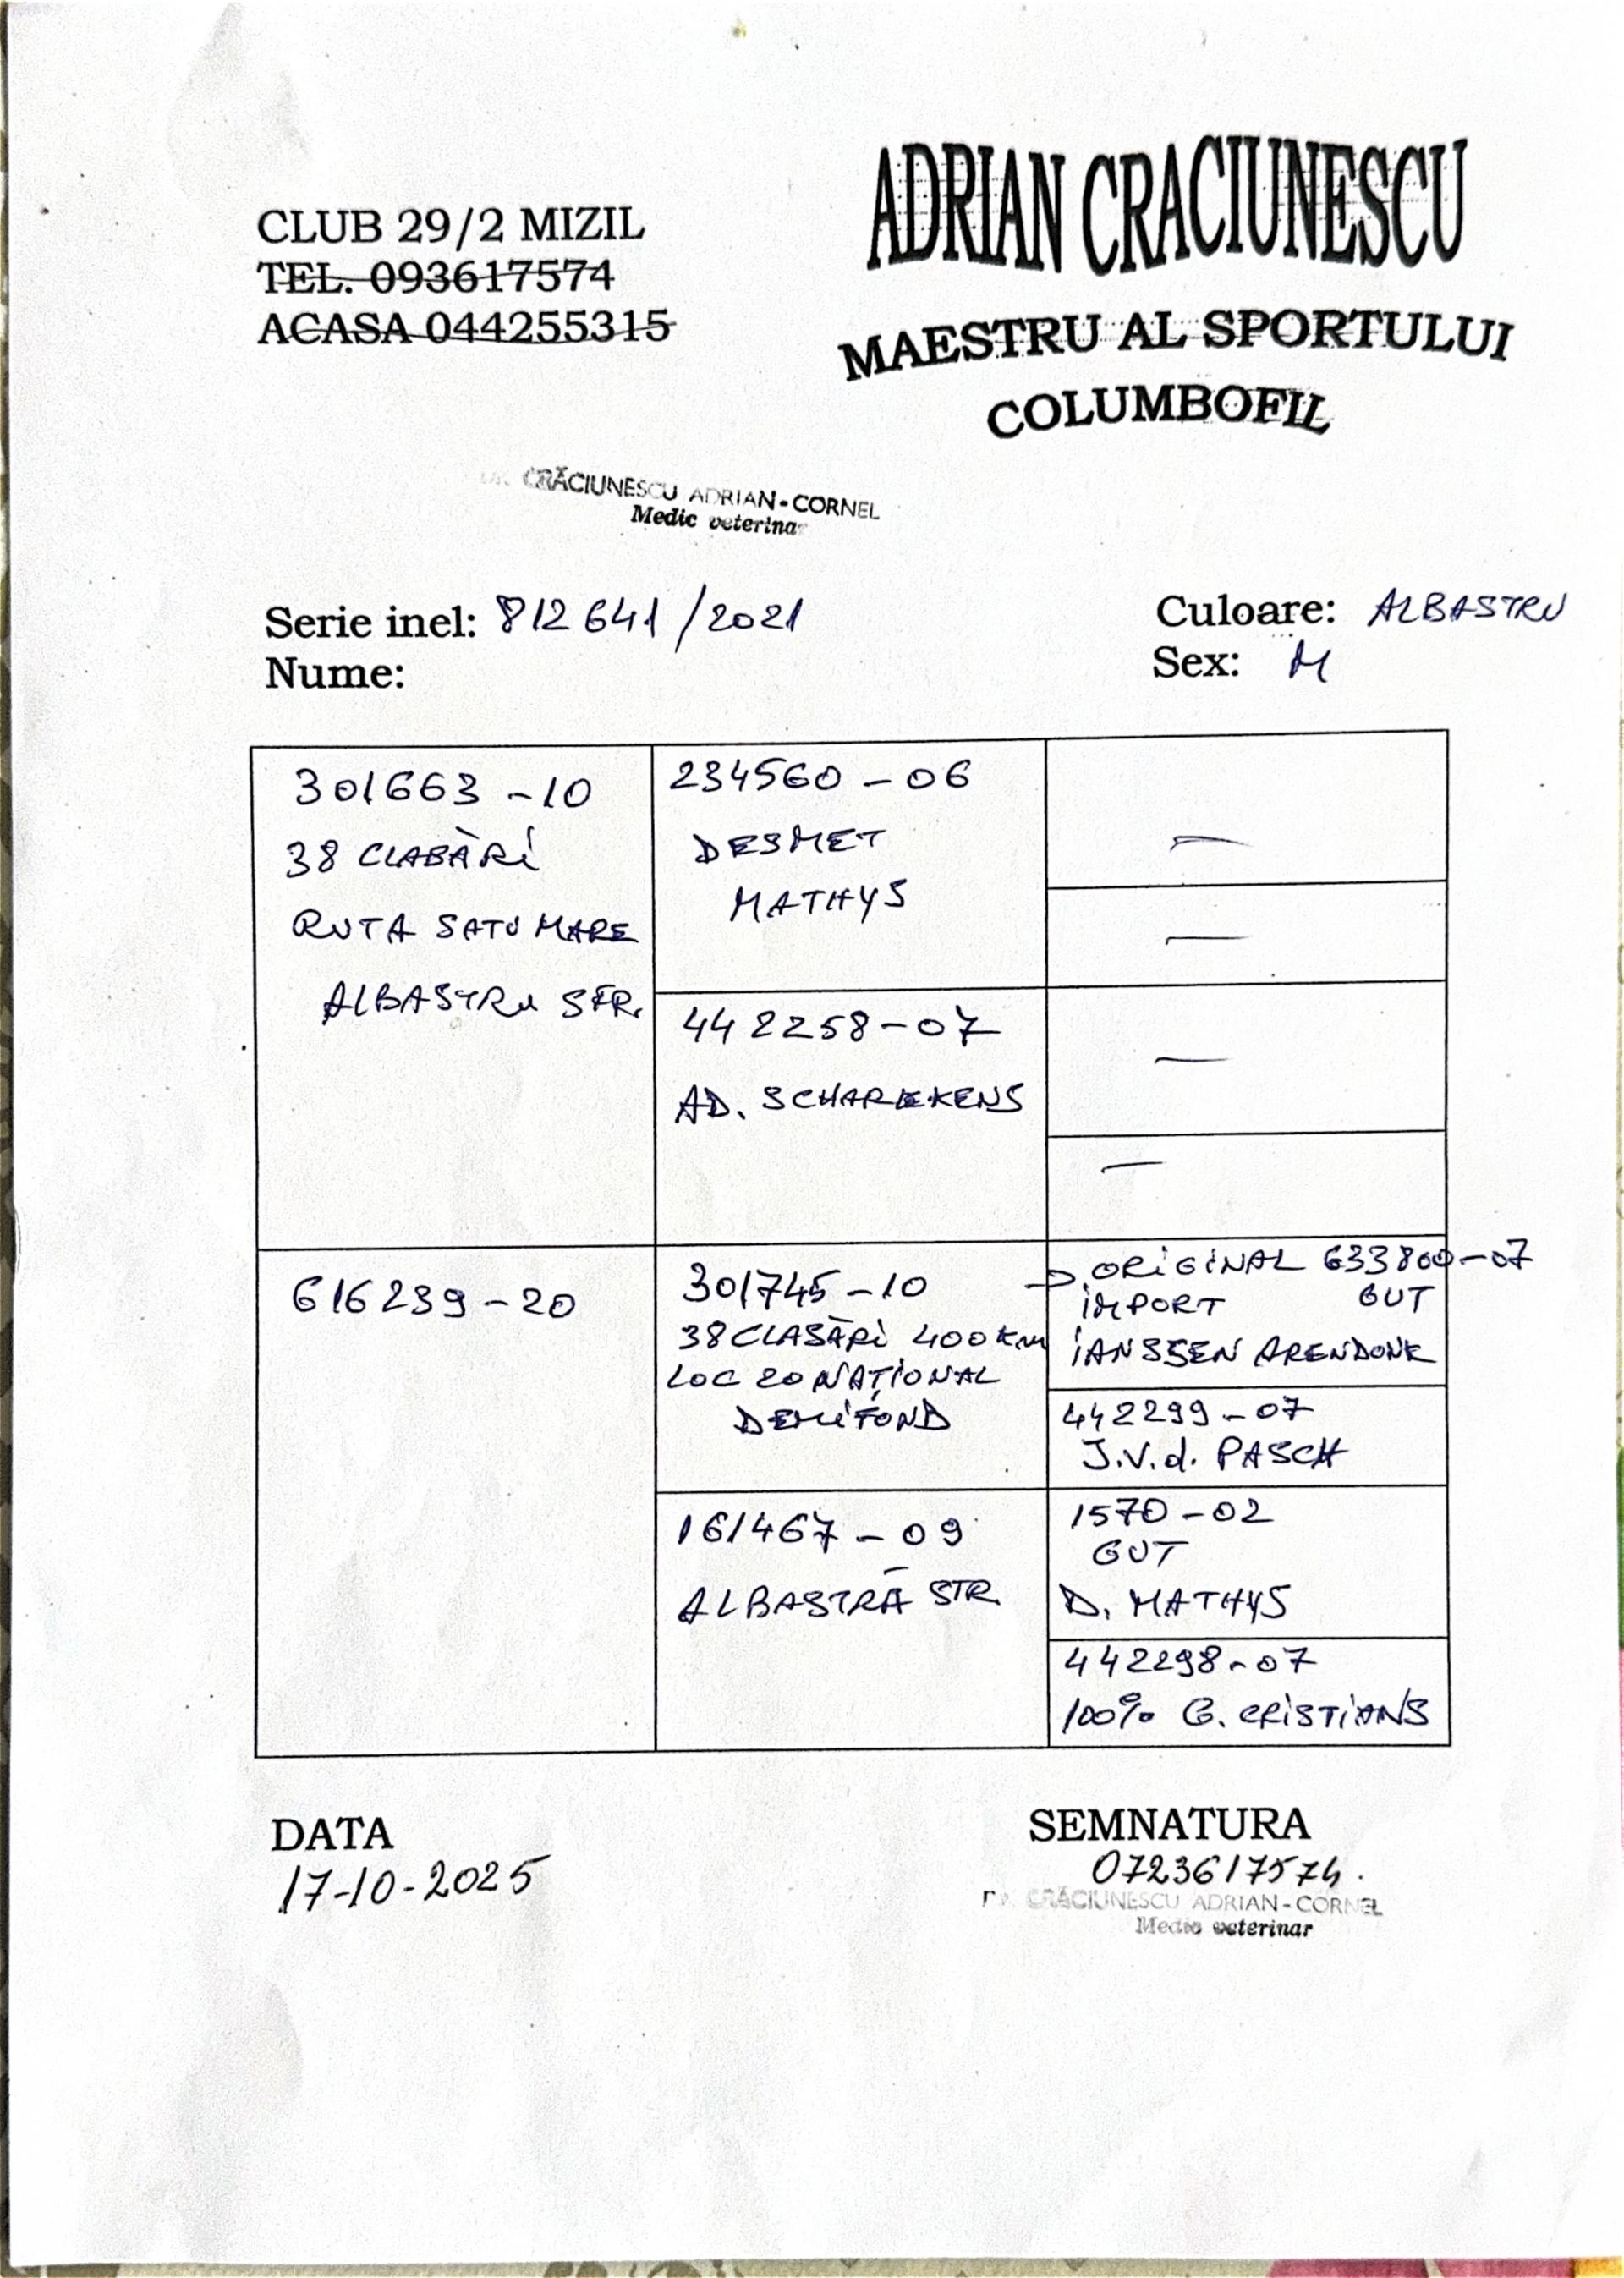 CLUB 29/2 MIZIL
TEL. 093617574
ACASA 044255315
ADRIAN CRACIUNESCU
MAESTRU AL SPORTULUI
COLUMBOFIL
DR. CRĂCIUNESCU ADRIAN-CORNEL
Medic veterinar
Serie inel: 812641/2021
Nume:
Culoare: ALBASTRU
Sex: M
301663-10
38 CLASĂRI
RUTA SATU MARE
ALBASTRU STR.
234560-06
DESMET
MATHYS
442258-07
AD. SCHAREKENS
—
—
—
—
616239-20
301745-10
38 CLASĂRI 400 KM
LOC 20 NAȚIONAL
DEMIFOND
ORIGINAL 633800-07
IMPORT GUT
IANSSEN ARENDONK
442299-07
J.V.d. PASCH
161467-09
ALBASTRĂ STR.
1570-02
GUT
D. MATHYS
442298-07
100% G. CRISTIANS
DATA
17-10-2025
SEMNATURA
0723617574.
DR. CRĂCIUNESCU ADRIAN-CORNEL
Medic veterinar